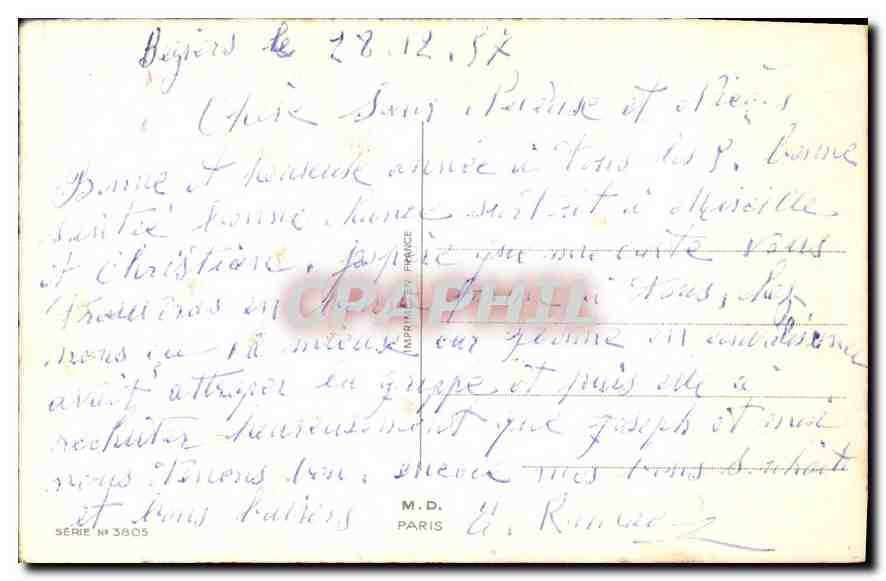 Beziers le 28.12.57
Chère Sœur et
Bonne et heureuse année à tous les 5. bonne
santée bonne chance surtout à Mireille
et Christian. jespère que ma carte vous
trouveras en bonne forme à tous, chez
nous ça va mieuse car Yvonne
avait attraper la grippe et puis elle à
rechuter heureusement que Joseph et moi
nous tenons bon. encore mes bons souhaits
et bons baisers
IMPRIMÉ EN FRANCE
CPAPHIL
M.D.
PARIS
SÉRIE No 3805